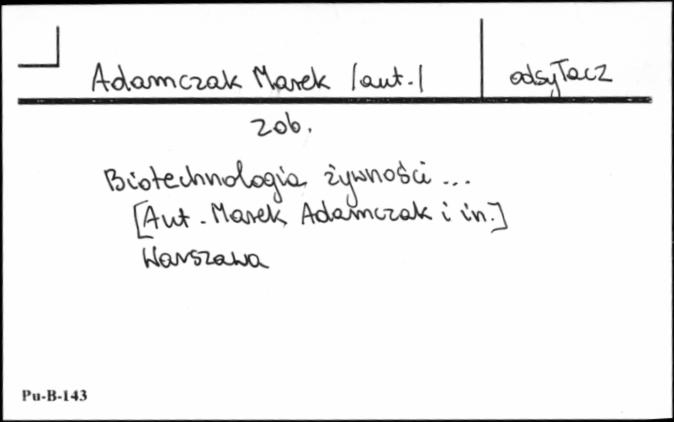 Adamczak Marek /aut./ odsyłacz
zob.
Biotechnologia żywności ...
[Aut. Marek Adamczak i in.]
Warszawa
Pu-B-143